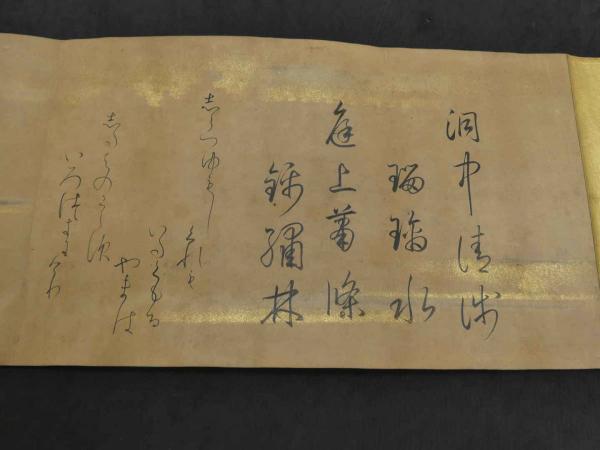 洞中清浅
瑠璃水
庭上蕭條
錦繍林
しらつゆもし
くれも
いたくもる
やまは
したはのこらす
いろつきにけり